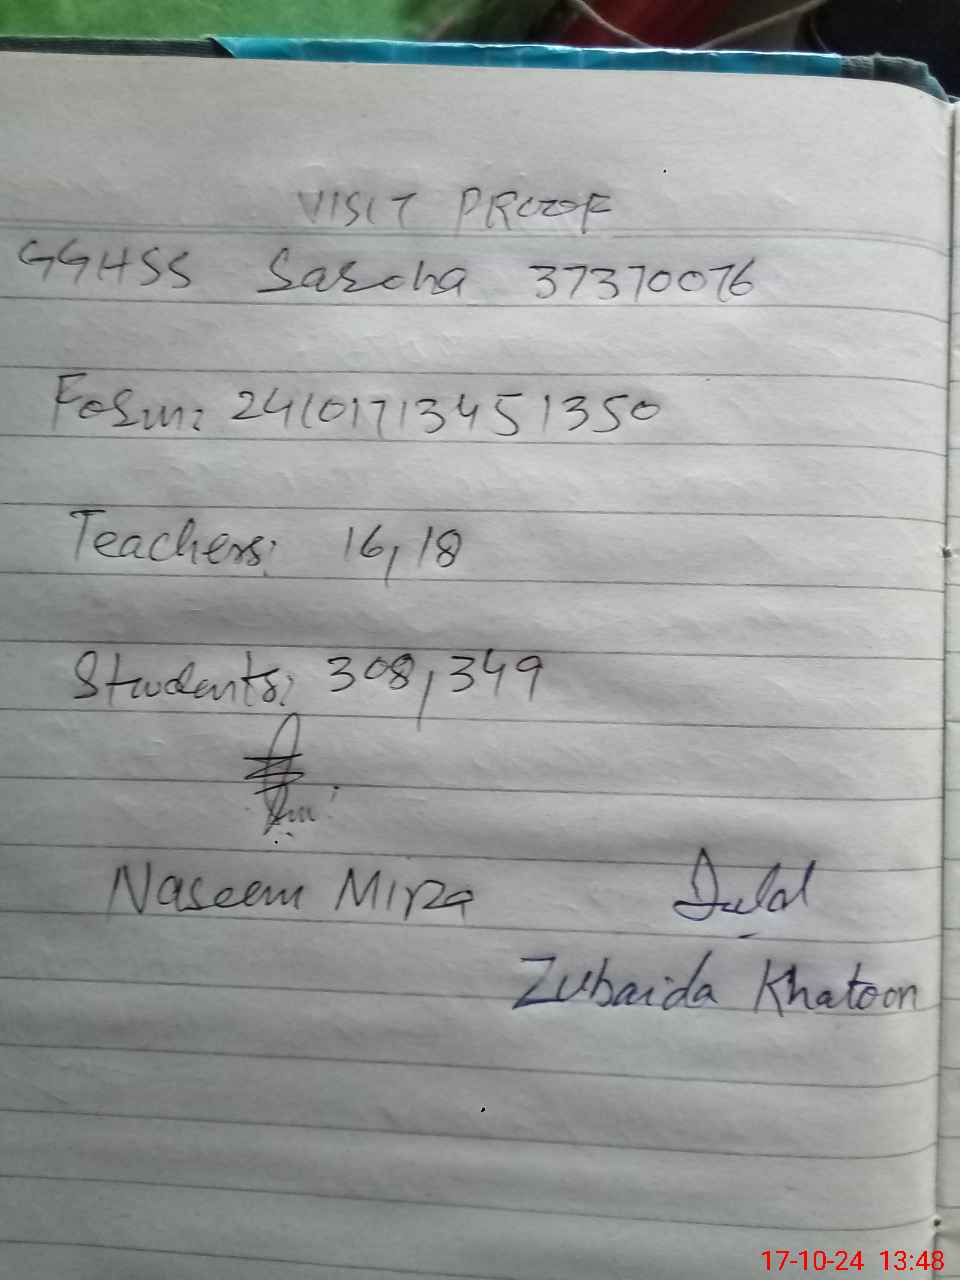 VISIT PROOF
GGHSS Saroha 37370076
Form: 2410171345 1350
Teachers: 16, 18
Students: 308, 349
Naseem Mirza
Zubaida Khatoon
17-10-24 13:48